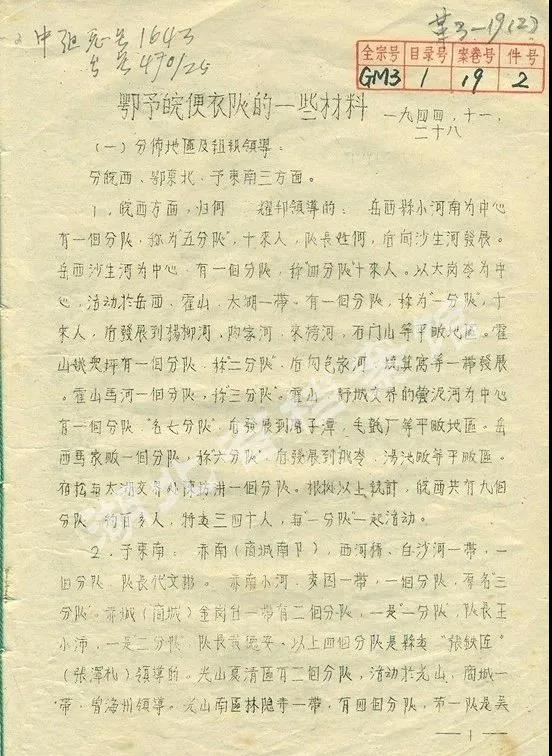 中组 号1643
字号470/25
某3-19(2)
全宗号 目录号 案卷号 件号
GM3 1 19 2
鄂予皖便衣队的一些材料
一九四四,十一,
二十八
(一)分佈地區及组织领导:
分皖西、鄂東北、予東南三方面。
1,皖西方面,归何 耀邦领導的: 岳西縣小河南为中心
有一個分队,称为"五分队",十来人,队長姓何,后向沙生河發展。
岳西沙生河为中心,有一個分队,称"四分队"十来人。以大岗岺为中
心,活动於岳西、霍山、太湖一带。有一個分队,称为"一分队",十
来人,后發展到楊柳河,陶家河,来榜河,石门山等平畈地區。霍
山 坪有一個分队,称"二分队",后向包家河, 窝等一带發展
。霍山馬河一個分队,称"三分队"。霍山、舒城交界的 泥河为中心
有一個分队,"名七分队",后發展到磨子潭,毛毯厂等平畈地區。岳
西馬家畈一個分队,称"六分队",后發展到 岺,汤池畈等平畈區。
宿松与太湖交界处 一個分队。根据以上統計,皖西共有九個
分队,约百多人,特委三四十人,每"一分队"一起活动。
2,予東南:赤南(商城南下),西河橋、白沙河一带,一
個分队,队長代文彬。赤南小河、麦园一带,一個分队,原名"三
分队"。赤城(商城)金岗台一带有二個分队,一是"一分队",队長王
小沛,一是二分队"队長 德安、以上四個分队是縣委"張 匠"
(張澤礼)领導的。光山夏清區有二個分队,活动於光山,商城一
带,曾海州领導。光山南區林隐寺一带,有四個分队,第一队是吴
—1—